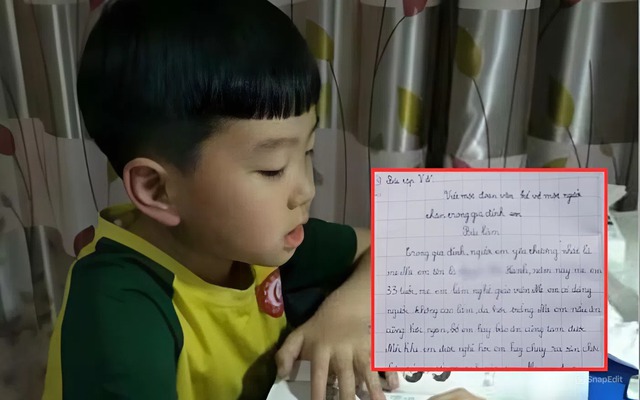 Bài tập Về
Viết một đoạn văn kể về một người
thân trong gia đình em
Bài làm
Trong gia đình, người em yêu thương nhất là
mẹ. Mẹ em tên là năm nay mẹ em
33 tuổi, mẹ em làm nghề giáo viên. Mẹ em có dáng
người không cao lắm, da hơi trắng. Mẹ em nấu ăn
cũng hơi ngon, bố em hay bảo ăn cũng tạm được
Mỗi khi em được nghỉ học em hay chạy ra sân chơi
SnapEdit